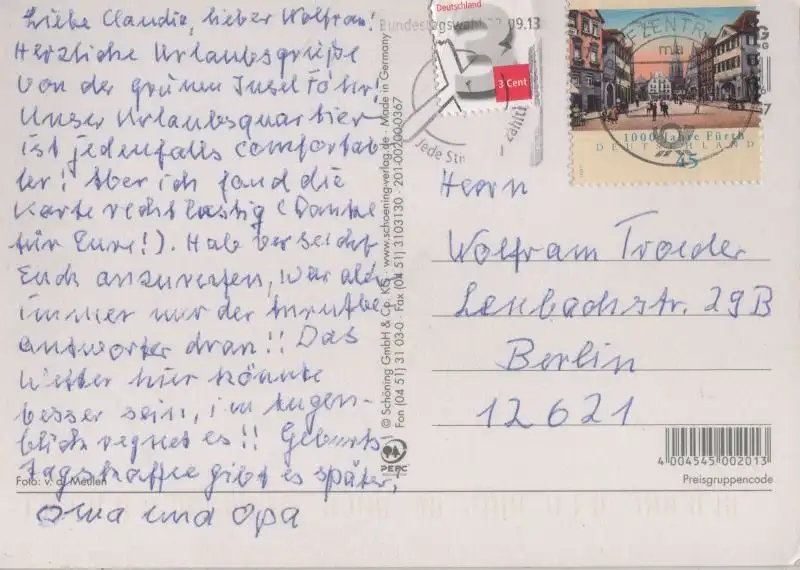 Liebe Claudia, lieber Wolfram!
Herzliche Urlaubsgrüße
von der grünen Insel Föhr!
Unser Urlaubsquartier
ist jedenfalls comfortab-
ler! Aber ich fand die
Karte recht lustig (Danke
für Eure!). Hab versucht
Euch anzurufen, war aber
immer nur der Anrufbe
antworter dran!! Das
Wetter hier könnte
besser sein, im Augen-
blick regnet es!! Geburts-
tagskaffee gibt es später,
Oma und Opa
Foto: v. d. Meulen
© Schöning GmbH & Co. KG · www.schoeningverlag.de · Made in Germany
Fon (04 51) 31 03-0 · Fax (04 51) 3103130 · 201-00200-0367
PEFC
Deutschland
3
3 Cent
Bundestagswahl 22.09.13
Jede Sti
zählt!
1000 Jahre Fürth
DEUTSCHLAND
45
Herrn
Wolfram Troeder
Lenbachstr. 29B
Berlin
12621
4 004545 002013
Preisgruppencode